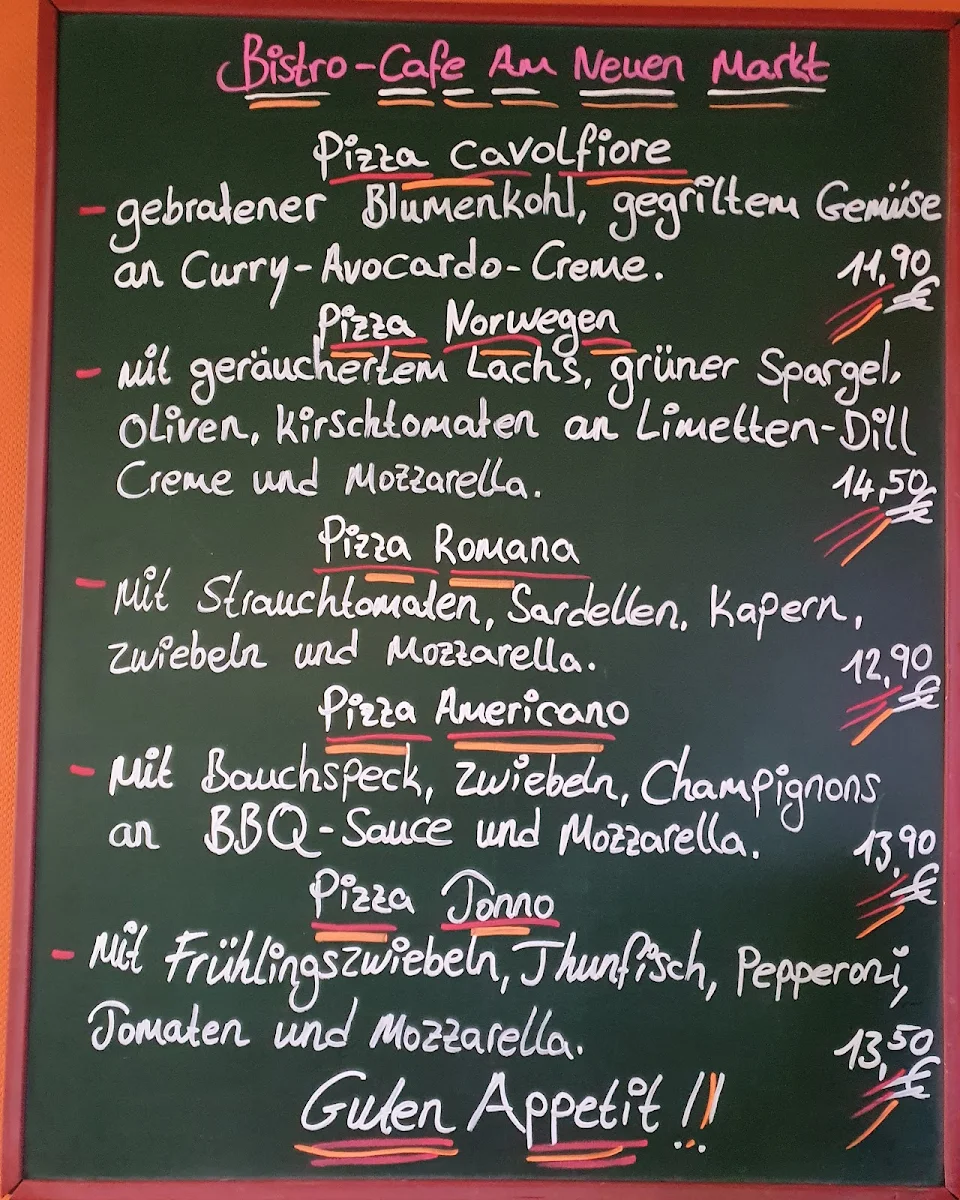 Bistro-Cafe Am Neuen Markt
Pizza Cavolfiore
- gebratener Blumenkohl, gegriltem Gemüse
an Curry-Avocardo-Creme. 11,90 €
Pizza Norwegen
- mit geräuchertem Lachs, grüner Spargel,
Oliven, Kirschtomaten an Limetten-Dill
Creme und Mozzarella. 14,50 €
Pizza Romana
- Mit Strauchtomaten, Sardellen, Kapern,
Zwiebeln und Mozzarella. 12,90 €
Pizza Americano
- Mit Bauchspeck, Zwiebeln, Champignons
an BBQ-Sauce und Mozzarella. 13,90 €
Pizza Tonno
- Mit Frühlingszwiebeln, Thunfisch, Pepperoni,
Tomaten und Mozzarella. 13,50 €
Guten Appetit !!